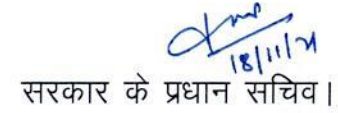 18/11/21
सरकार के प्रधान सचिव।